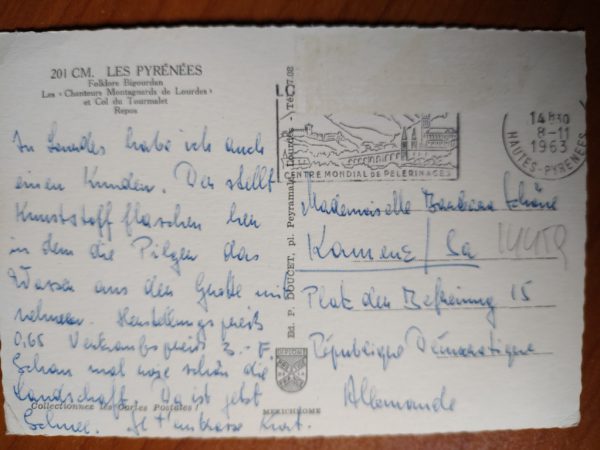 201 CM. LES PYRÉNÉES
Folklore Bigourdan
Les « Chanteurs Montagnards de Lourdes »
et Col du Tourmalet
Repos
In Lourdes habe ich auch
einen Kunden. Der stellt
Kunststoffflaschen her
in dem die Pilger das
Wasser aus der Grotte mit
nehmen. Herstellungspreis
0,65 Verkaufspreis 3.- F.
Schau mal wie schön die
Landschaft. Da ist jetzt
Schnee. Kurt.
Collectionnez les Cartes Postales !
Ed. P. DOUCET, pl. Peyramale, Lourdes - Tél. 7.08
MEXICHROME
LO
CENTRE MONDIAL DE PELERINAGES
14H30
8-11
1963
HAUTES-PYRENEES
Mademoiselle Barbara Schöne
Kamenz / Sa
Platz der Befreiung 15
République Démocratique
Allemande